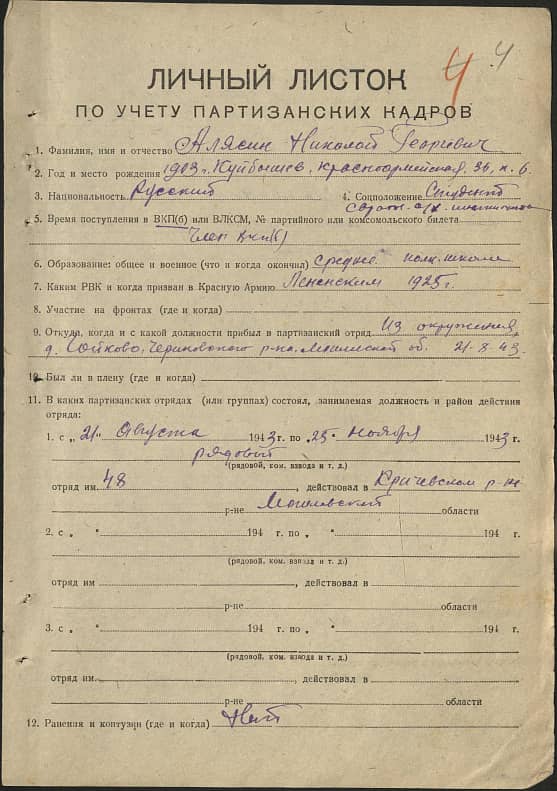 4 4
ЛИЧНЫЙ ЛИСТОК
ПО УЧЕТУ ПАРТИЗАНСКИХ КАДРОВ
1. Фамилия, имя и отчество Алясин Николай Георгиевич
2. Год и место рождения 1903 г. Куйбышев, Красноармейская, 36, к. 6.
3. Национальность Русский 4. Соцположение Студент
с/х института
5. Время поступления в ВКП(б) или ВЛКСМ, № партийного или комсомольского билета
Член ВКП(б)
6. Образование: общее и военное (что и когда окончил) Среднее полк. школа
7. Каким РВК и когда призван в Красную Армию Ленинским 1925 г.
8. Участие на фронтах (где и когда)
9. Откуда, когда и с какой должности прибыл в партизанский отряд Из окружения,
д. Чериковского р-на, Могилевской об. 21-8-43.
10. Был ли в плену (где и когда)
11. В каких партизанских отрядах (или группах) состоял, занимаемая должность и район действия
отряда:
1. с „21" Августа 1943 г. по „25" ноября 1943 г.
рядовый
(рядовой, ком. взвода и т. д.)
отряд им. 48, действовал в Кричевском р-не
р-не Могилевский области
2. с „ " 194 г. по „ " 194 г.
(рядовой, ком. взвода и т. д.)
отряд им , действовал в
р-не области
3. с „ " 194 г. по „ " 194 г.
(рядовой, ком. взвода и т. д.)
отряд им. , действовал в
р-не области
12. Ранения и контузии (где и когда) Нет